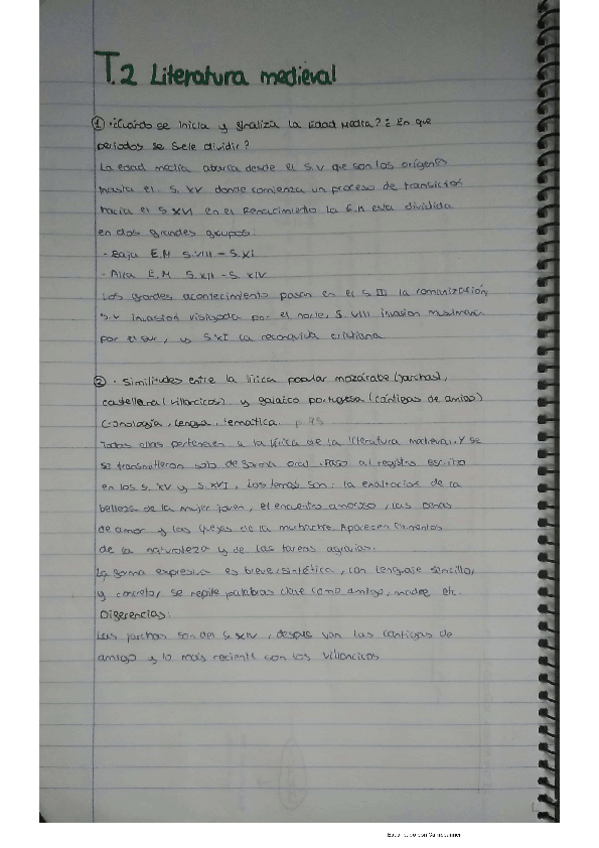 T.2 Literatura medieval
① ·¿Cuándo se inicia y finaliza la Edad Media? ¿En que
periodos se suele dividir?
La edad media abarca desde el S.V que son los orígenes
hasta el S. XV donde comienza un proceso de transicion
hacia el S XVI en el Renacimiento la E.M esta dividida
en dos grandes grupos:
- Baja E.M S.VIII - S.XI
- Alta E.M S.XII - S.XIV
Los grandes acontecimiento pasan en el S III la romanización,
S.V Invasion visigoda por el norte, S. VIII invasion musulmana
por el sur, y S.XI la reconquista cristiana
② · Similitudes entre la lírica popular mozárabe (jarchas),
castellana (villancicos) y galaico portuguesa (cántigas de amigo)
Cronología, Lengua, tematica. p 45
Todas ellas pertenecen a la lírica de la literatura material. Y se
se transmitieron solo de forma oral. Paso al registro escrito
en los S. XV y S.XVI, Los temas son: la exaltacion de la
belleza de la mujer joven, el encuentro amoroso, las
de amor y las quejas de la muchacha. Aparecen elementos
de la naturaleza y de las tareas agrarias.
La forma expresiva es breve, sintética, con lenguaje sencillo,
y concreto, se repite palabras clave como amigo, madre etc.
Diferencias:
Las jarchas son del S. XIV, despues van las cantigas de
amigo y lo más reciente con los villancicos